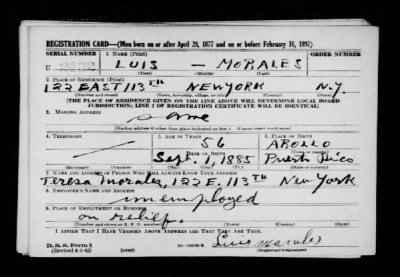 REGISTRATION CARD—(Men born on or after April 28, 1877 and on or before February 16, 1897)
SERIAL NUMBER 1. NAME (Print) ORDER NUMBER
U LUIS — MORALES
(First) (Middle) (Last)
2. PLACE OF RESIDENCE (Print)
122 EAST 113TH NEW YORK N.Y.
(Number and street) (Town, township, village, or city) (County) (State)
[THE PLACE OF RESIDENCE GIVEN ON THE LINE ABOVE WILL DETERMINE LOCAL BOARD
JURISDICTION; LINE 2 OF REGISTRATION CERTIFICATE WILL BE IDENTICAL]
3. MAILING ADDRESS
same
[Mailing address if other than place indicated on line 2. If same insert word same]
4. TELEPHONE 5. AGE IN YEARS 6. PLACE OF BIRTH
56 AROLLO
DATE OF BIRTH
Sept. 1, 1885 Puerto Rico
7. NAME AND ADDRESS OF PERSON WHO WILL ALWAYS KNOW YOUR ADDRESS
Teresa Morales, 122 E. 113th New York
8. EMPLOYER'S NAME AND ADDRESS
unemployed
9. PLACE OF EMPLOYMENT OR BUSINESS
on relief.
(Number and street or R. F. D. number) (Town) (County) (State)
I AFFIRM THAT I HAVE VERIFIED ABOVE ANSWERS AND THAT THEY ARE TRUE.
D. S. S. Form 1
(Revised 4-1-42) (over) Luis Morales
(Registrant's signature)